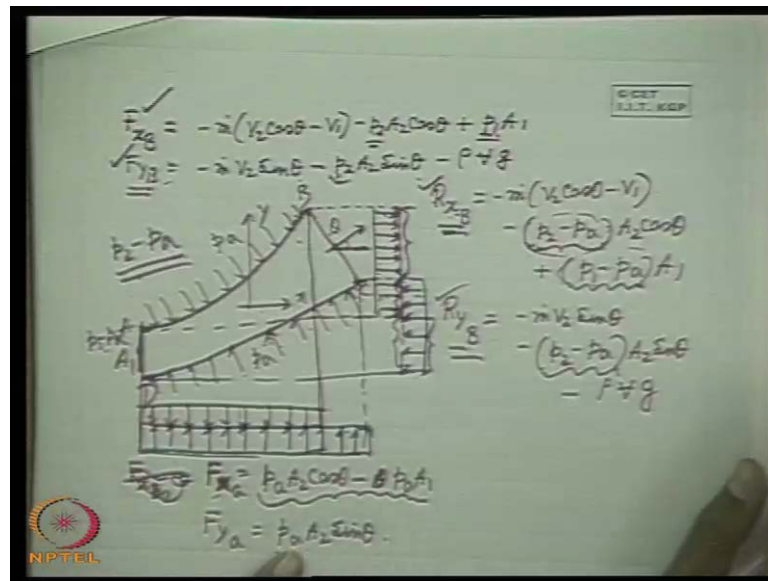 © CET
I.I.T. KGP
F_xB = -ṁ(V2 Cosθ - V1) - p2 A2 Cosθ + p1 A1
F_yB = -ṁ V2 Sinθ - p2 A2 Sinθ - ρ∀g
R_xB = -ṁ(V2 Cosθ - V1)
- (p2 - pa) A2 Cosθ
+ (p1 - pa) A1
R_yB = -ṁ V2 Sinθ
- (p2 - pa) A2 Sinθ
- ρ∀g
p2 - pa
B
Y
θ
pa
x
C
A1
pa
D
F_xa = pa A2 Cosθ - pa A1
F_ya = pa A2 Sinθ.
NPTEL